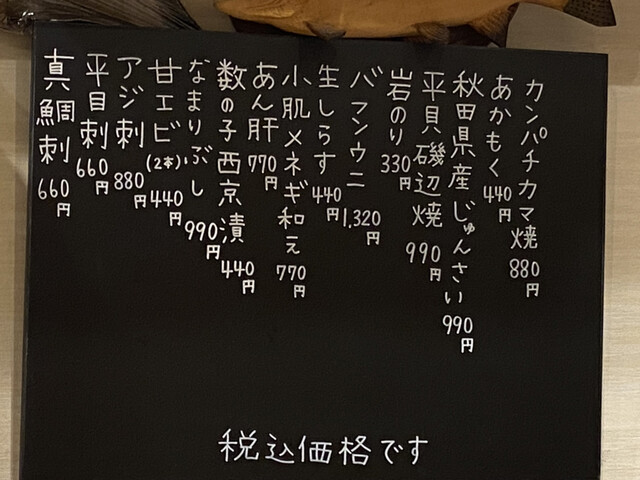 カンパチカマ焼 880円
あかもく 440円
秋田県産じゅんさい 990円
平貝磯辺焼 990円
岩のり 330円
バフンウニ 1,320円
生しらす 440円
小肌メネギ和え 770円
あん肝 770円
数の子西京漬 440円
なまりぶし 990円
甘エビ(2本) 440円
アジ刺 880円
平目刺 660円
真鯛刺 660円
税込価格です